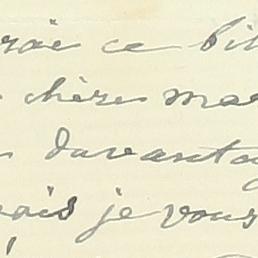 ce bil
chères ma
davantag
ais je vous